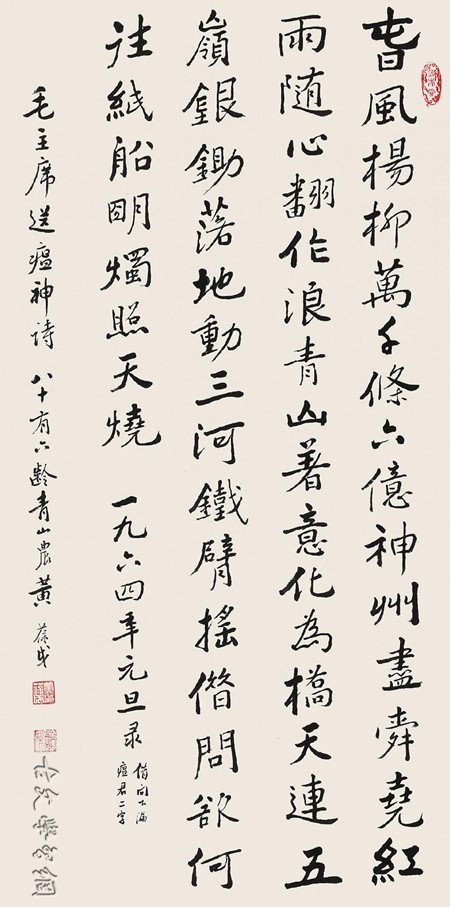 春風楊柳萬千條六億神州盡舜堯紅
雨随心翻作浪青山著意化為橋天連五
嶺銀鋤落地動三河鐵臂搖借問欲何
往紙船明燭照天燒 一九六四年元旦录
借問下漏
瘟君二字
毛主席送瘟神詩 八十有六齡青山農黃葆戉